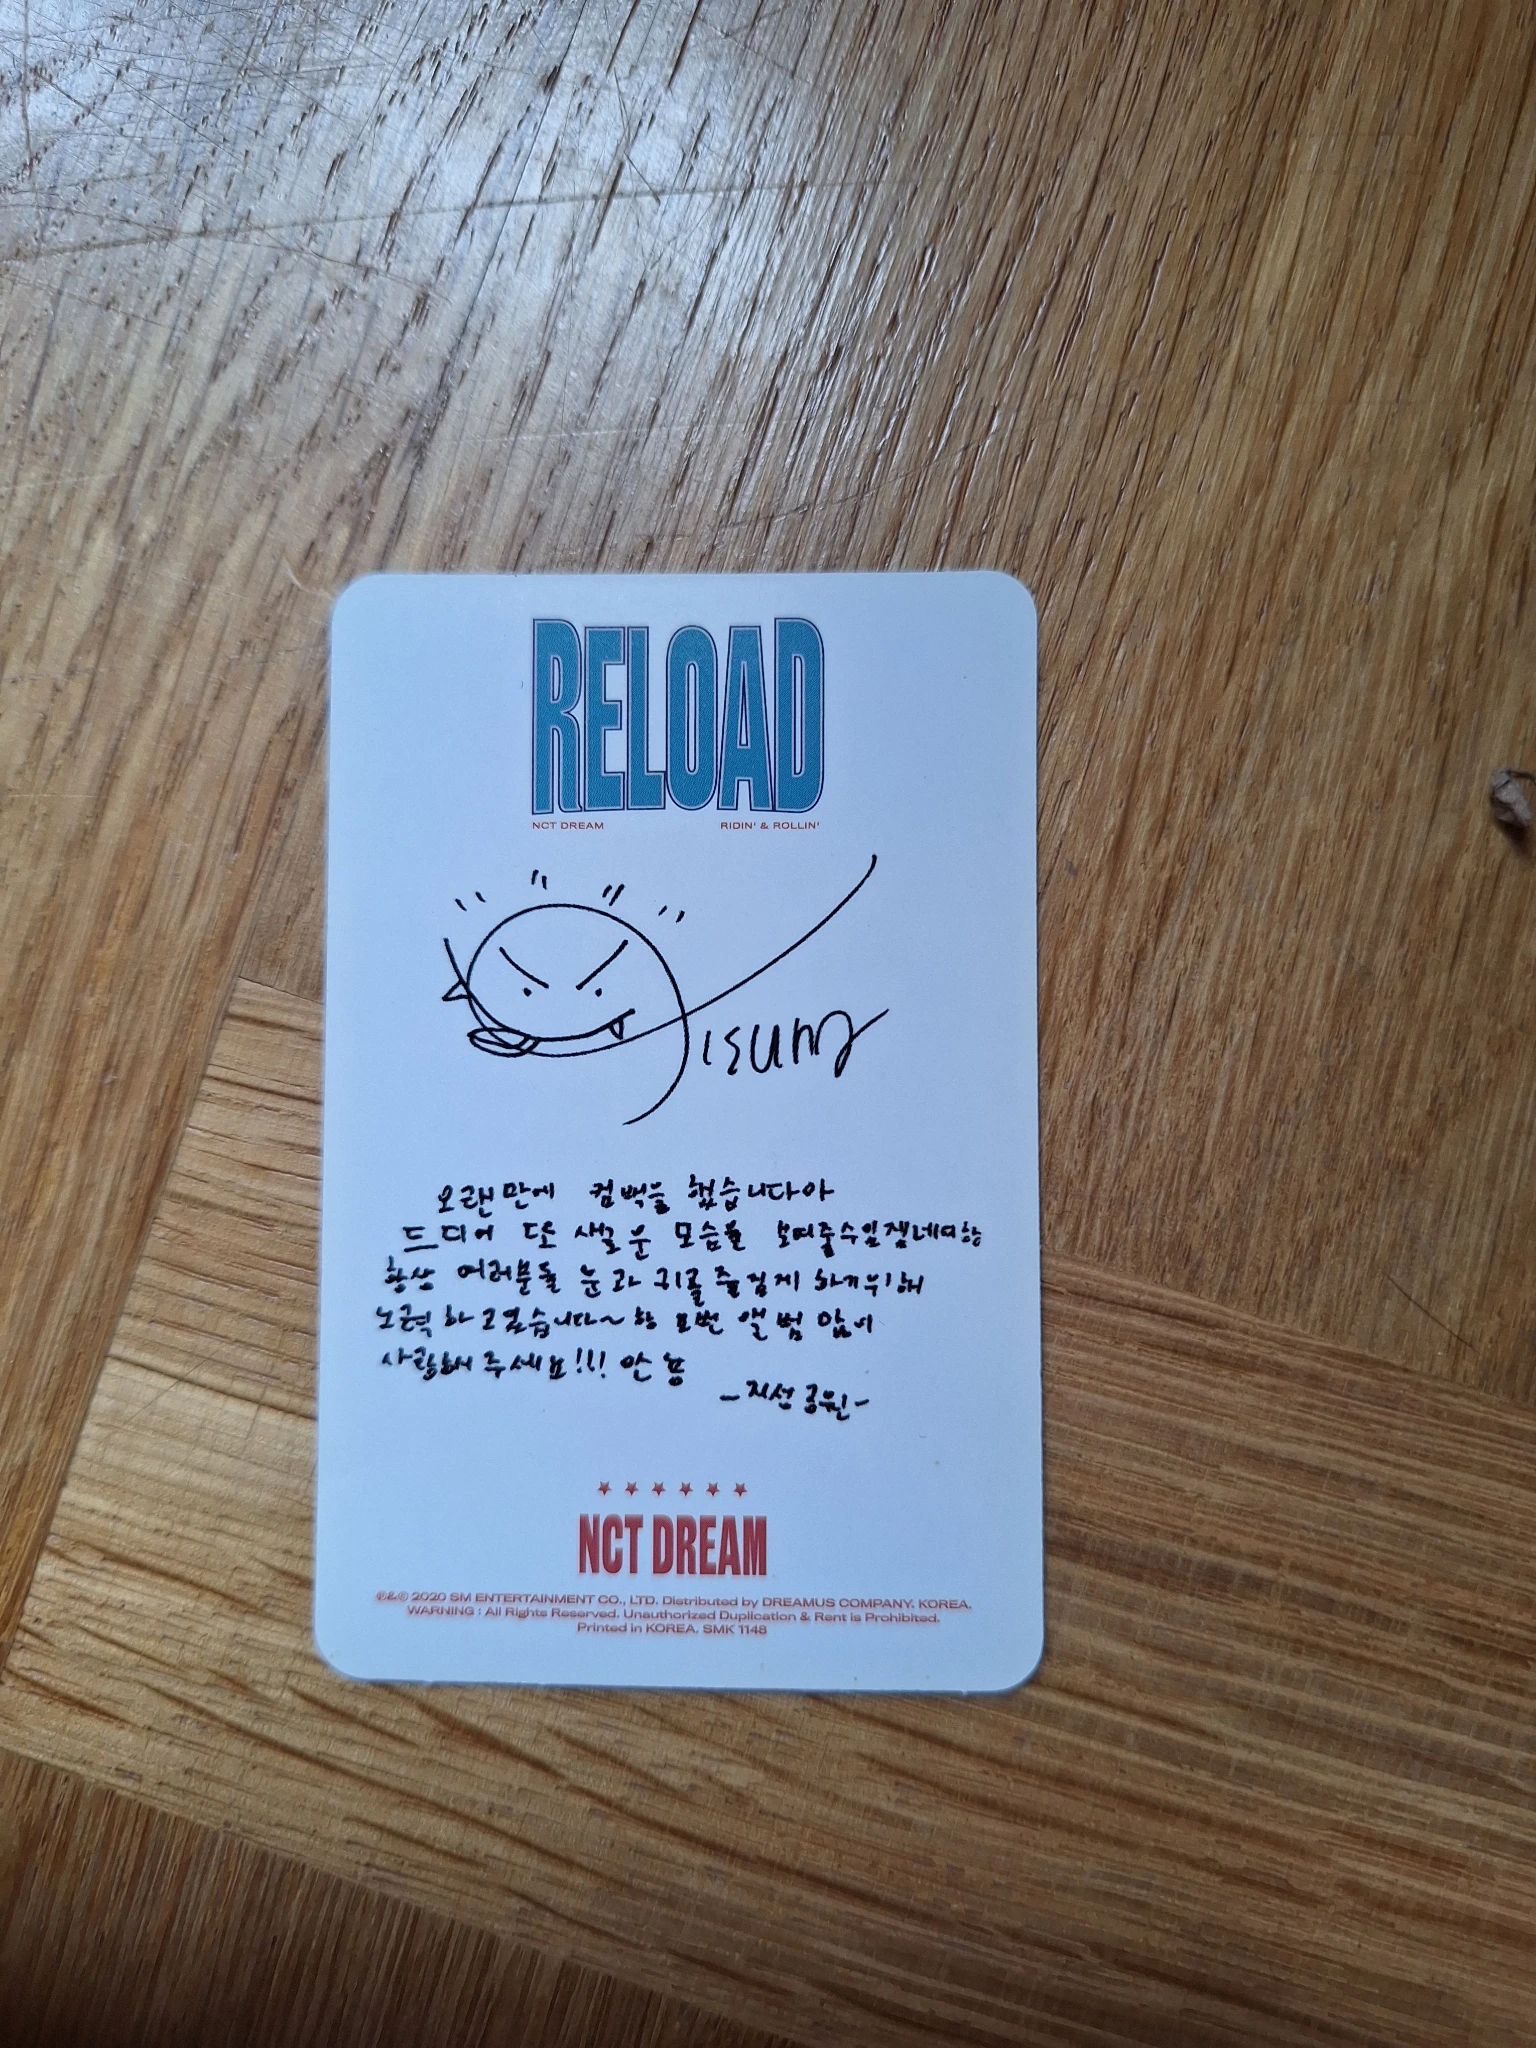 RELOAD
NCT DREAM RIDIN' & ROLLIN'
Jisung
오랜만에 컴백을 했습니다아
드디어 또 새로운 모습을
항상 여러분들 눈과 귀를 즐겁게 하기위해
노력하고있습니다~ 앨범 많이
사랑해주세요!!! 안뇽
-지성
NCT DREAM
℗&© 2020 SM ENTERTAINMENT CO., LTD. Distributed by DREAMUS COMPANY. KOREA.
WARNING : All Rights Reserved. Unauthorized Duplication & Rent is Prohibited.
Printed in KOREA. SMK 1148